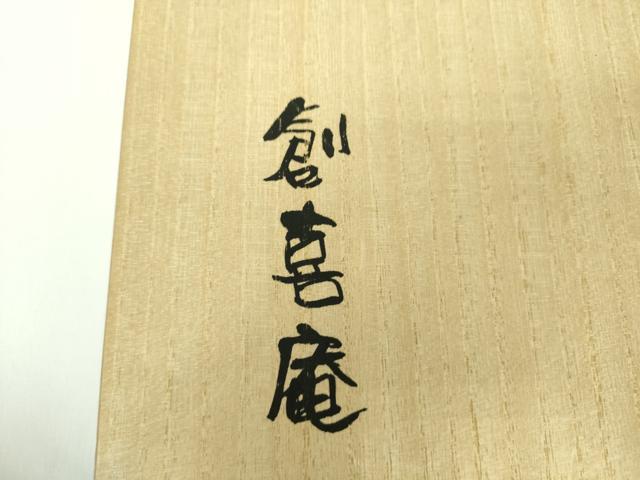 創喜庵